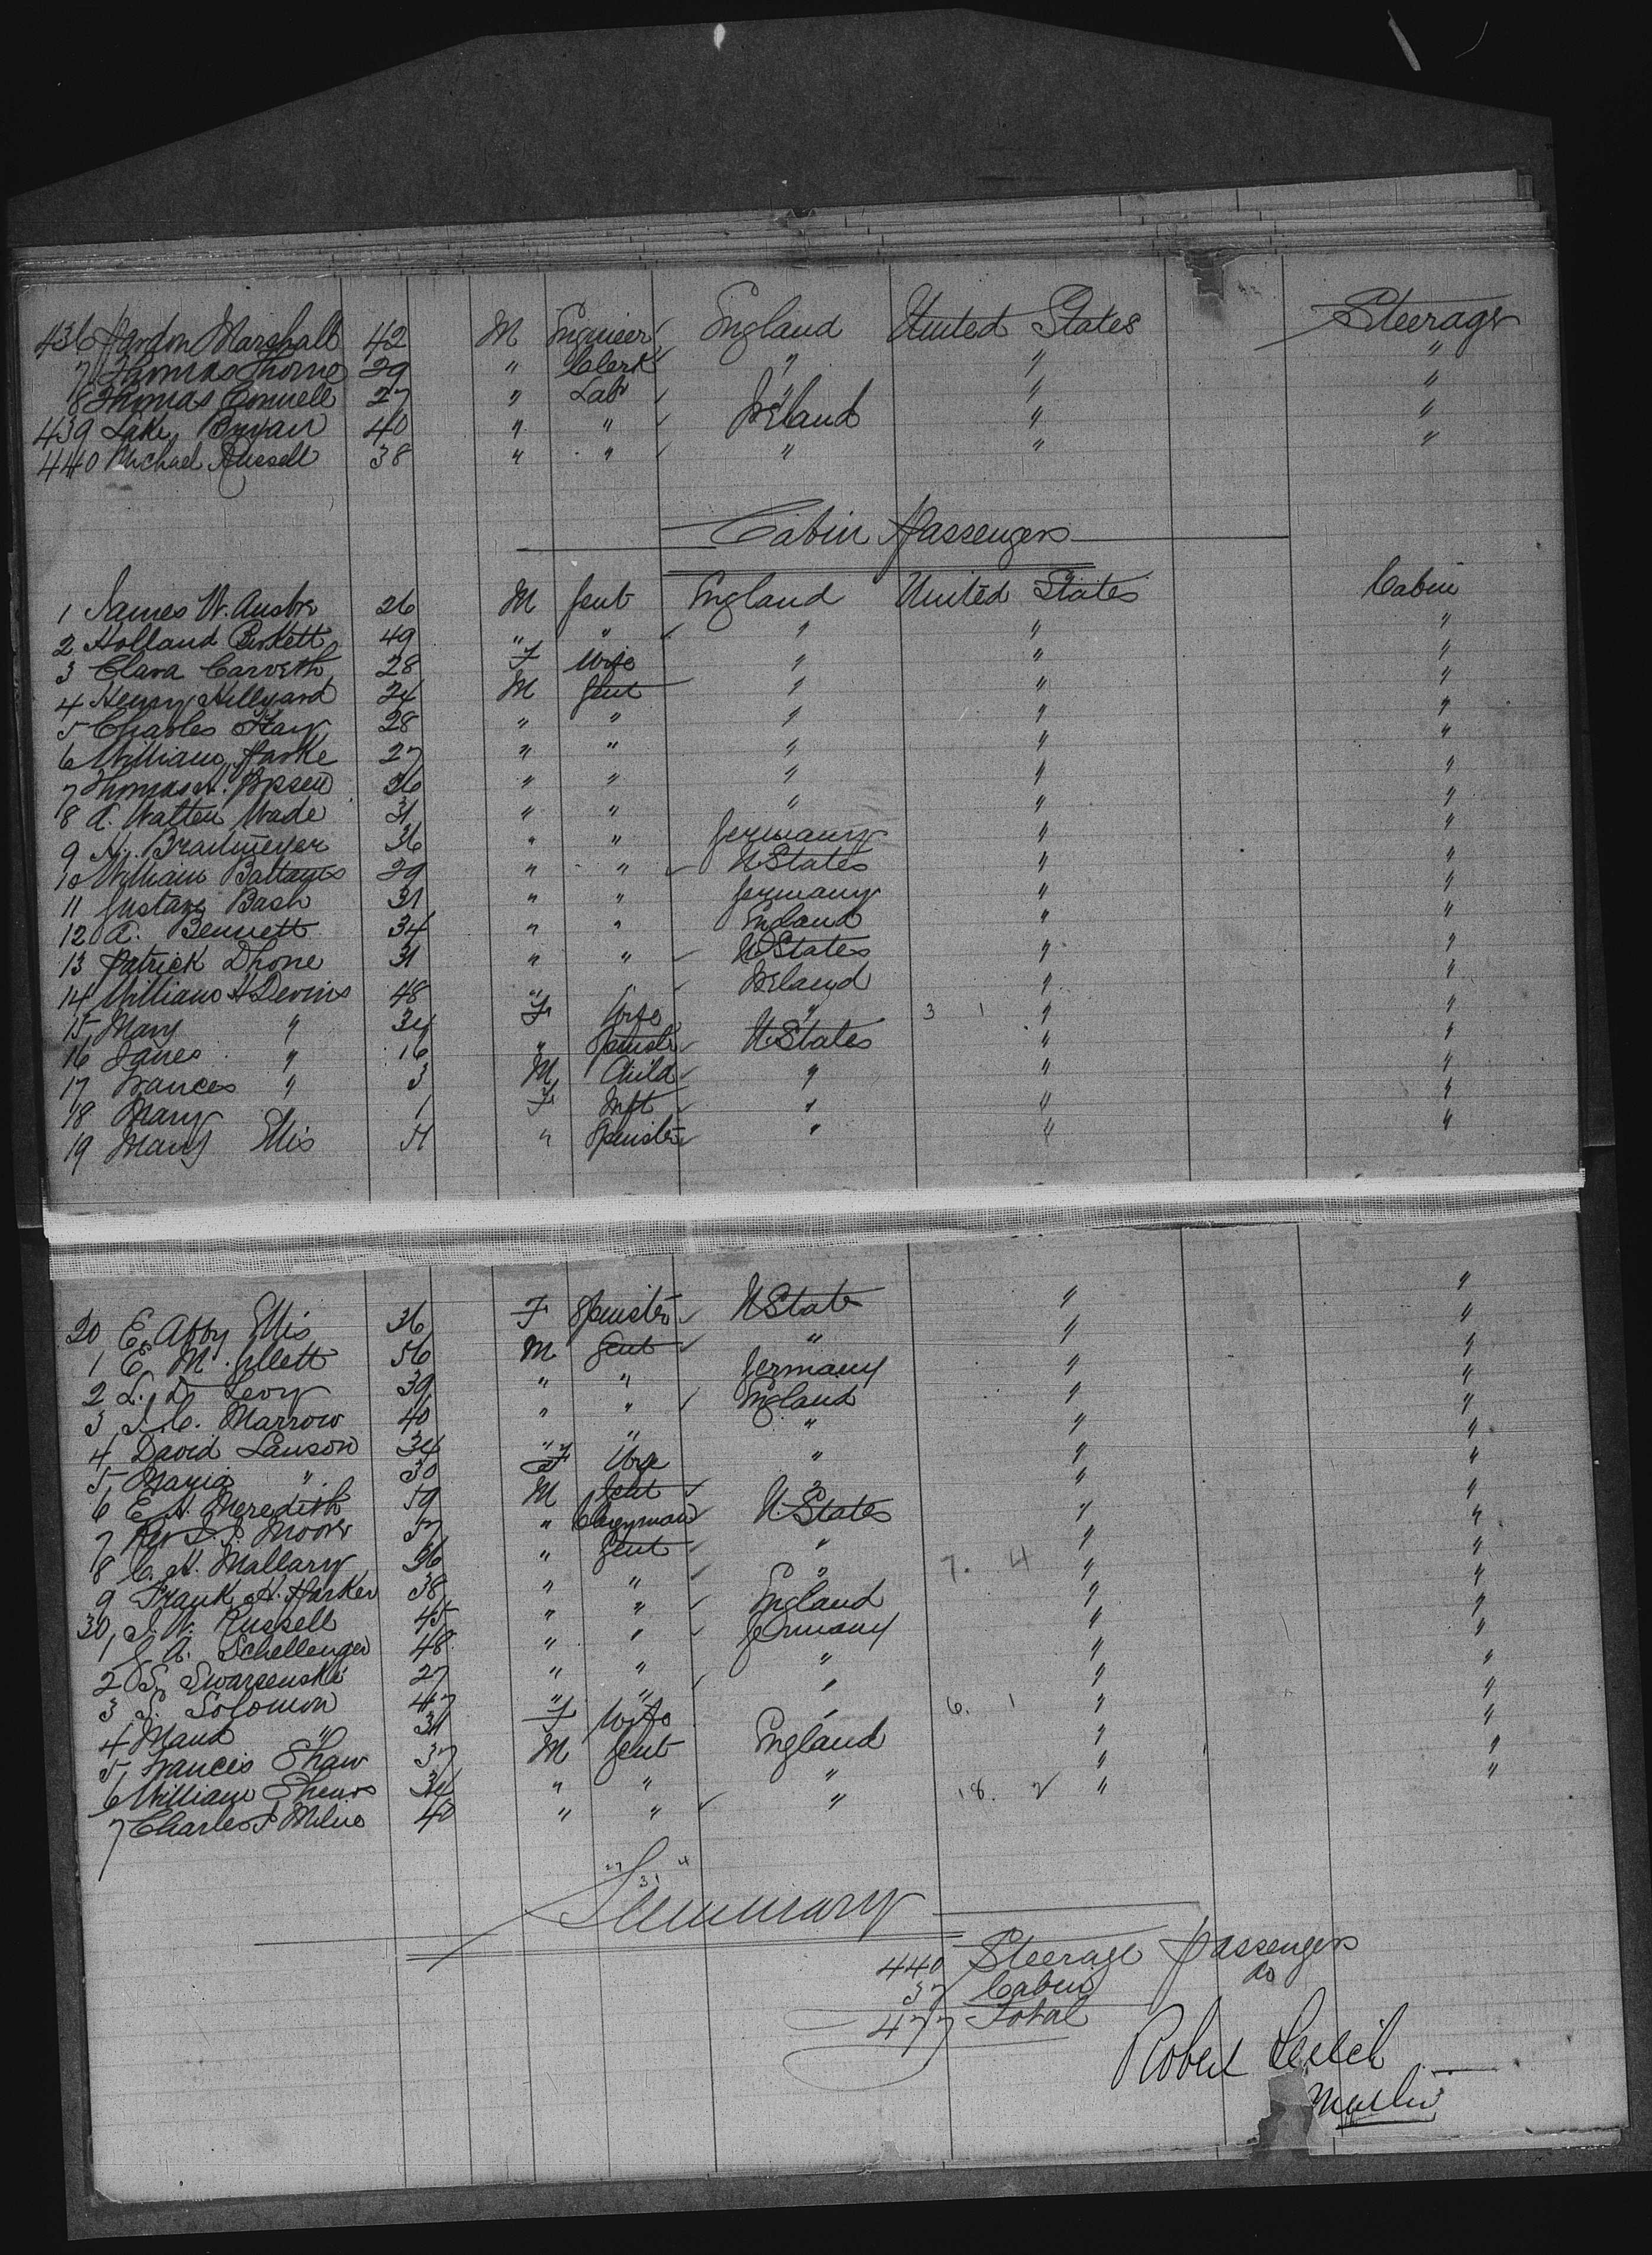 436 Hardon Marshall 42 M Engineer England United States Steerage
7 Thomas Thorne 29 " Clerk " " "
8 Thomas Connell 27 " Labr " " "
439 Luke Bryan 40 " " Ireland " "
440 Michael Russell 38 " " " " "
Cabin Passengers
1 James W. 26 M Gent England United States Cabin
2 Holland 49 " " " " "
3 Clara Carveth 28 F Wife " " "
4 Henry Hillyard 24 M Gent " " "
5 Charles Hay 28 " " " " "
6 William 27 " " " " "
7 Thomas 36 " " " " "
8 A. Walten Wade 31 " " " " "
9 H. Braitmeyer 36 " " Germany " "
10 William 29 " " U States " "
11 Gustave Bash 31 " " Germany " "
12 A. Bennett 34 " " England " "
13 Patrick Dhone 31 " " U States " "
14 William H Devins 48 " " Ireland " "
15 Mary " 34 F Wife " 3 1 " "
16 Janes " 16 " Spinster U States " "
17 Frances " 3 M Child " " "
18 Mary 1 F Inft " " "
19 Mary Ellis 51 " Spinster " " "
20 E. Abby Ellis 36 F Spinster U State " "
1 E. M. 56 M Gent " " "
2 L. D. Levy 39 " " Germany " "
3 J. C. Marrow 40 " " England " "
4 David Lauson 34 " " " " "
5 Maria " 30 F Wife " " "
6 E. A. Meredith 59 M Gent " " "
7 Rev J. P. Moore 57 " Clergyman U. States " "
8 C. H. Mallary 36 " Gent " " "
9 Frank H. Parker 38 " " " 7. 4 " "
30 J. W. Russell 45 " " England " "
1 G A. Schellenger 48 " " Germany " "
2 S. Swarsenski 27 " " " " "
3 S. Solomon 47 " " " " "
4 Maud " 31 F Wife " 6. 1 " "
5 Frances Shaw 37 M Gent England " "
6 William 34 " " " " "
7 Charles P Milne 40 " " " 18. 2 " "
Summary
440 Steerage Passengers
37 Cabin do
477 Total
Robert Leslie
Master